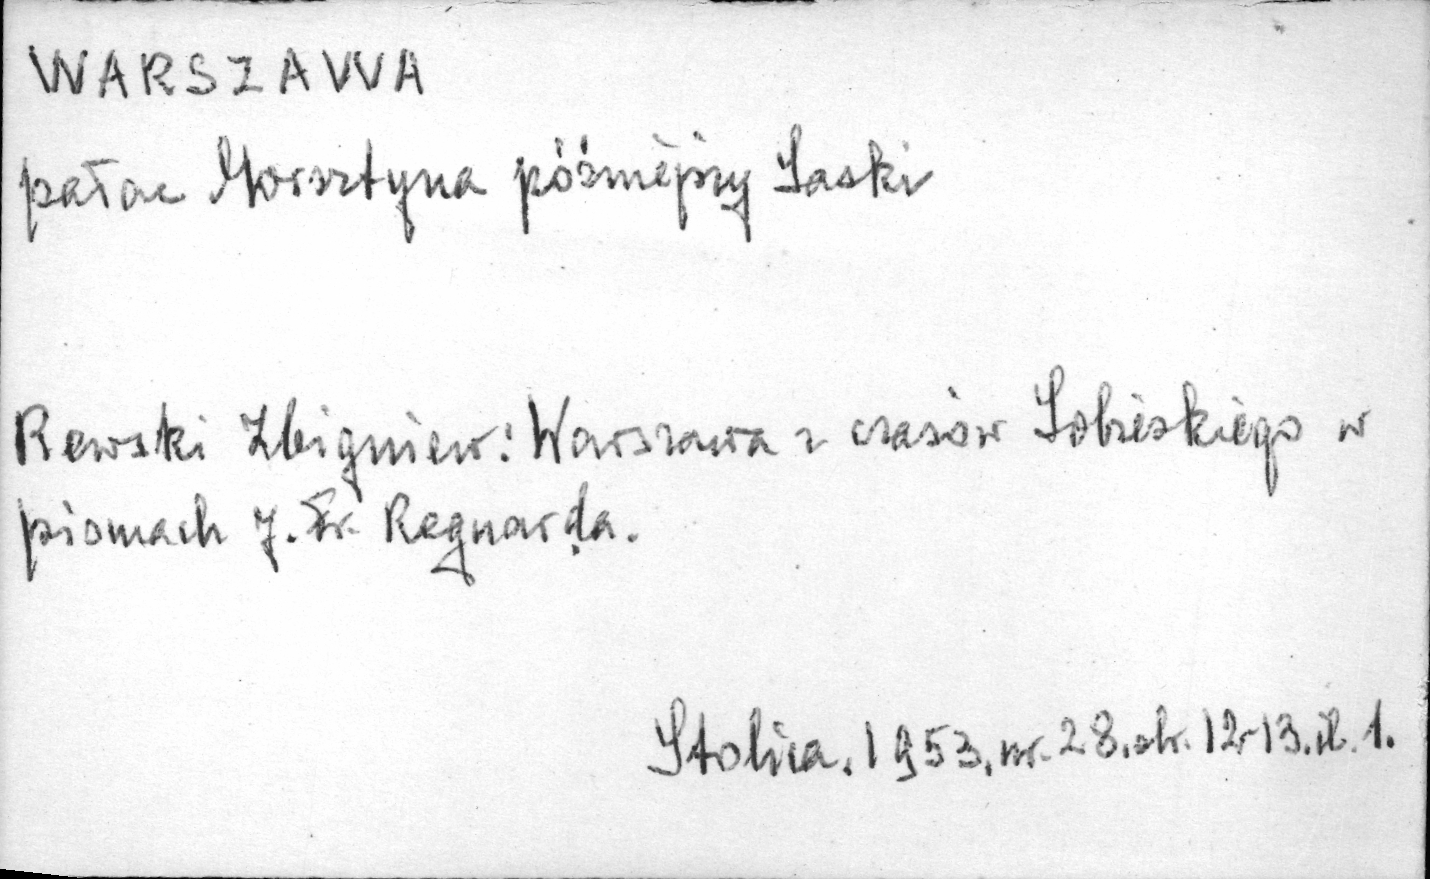 WARSZAWA
pałac Morsztyna późniejszy Saski
Rewski Zbigniew: Warszawa z czasów Sobieskiego w
pismach J. Fr. Regnarda.
Stolica. 1953, nr. 28. str. 12-13. il. 1.